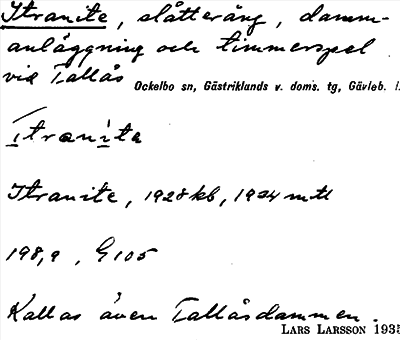 Itranite, slåtteräng, damm-
anläggning och timmerspel
vid Tallås Ockelbo sn, Gästriklands v. doms. tg, Gävleb. l.
Itranita
Itranite, 1928 kb, 1934 mtl
198,9, G105
Kallas även Tallåsdammen.
LARS LARSSON 1935